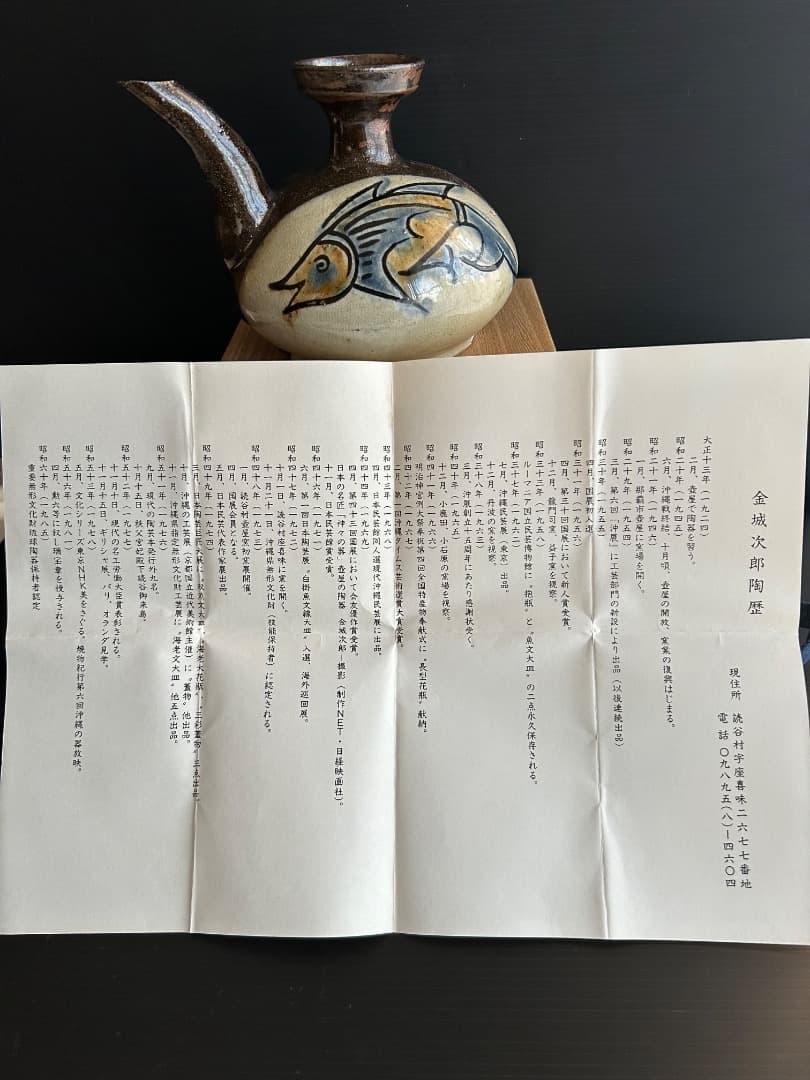 金城次郎陶歴
現住所 読谷村字座喜味二六七七番地
電話 〇九八九五(八)ー四六〇四
大正十三年(一九二四)
二月、壺屋で陶器を習う。
昭和二十年(一九四五)
六月、沖縄戦終結、十月頃、壺屋の開放、窯業の復興はじまる。
昭和二十一年(一九四六)
一月、那覇市壺屋に窯場を開く。
昭和二十九年(一九五四)
三月、第六回「沖展」に工芸部門の新設により出品(以後連続出品)
昭和三十年(一九五五)
四月、国展初入選
昭和三十一年(一九五六)
四月、第三十回国展において新人賞受賞。
十二月、龍門司窯、益子窯を視察。
昭和三十三年(一九五八)
ルーマニア国立民芸博物館に“抱瓶”と“魚文大皿”の二点永久保存される。
昭和三十七年(一九六二)
七月、沖縄民芸展(東京)出品。
十二月、丹波の窯を視察。
昭和三十八年(一九六三)
三月、沖展創立十五周年にあたり感謝状受く。
昭和四十年(一九六五)
十二月、小鹿田、小石原の窯場を視察。
昭和四十一年(一九六六)
明治神宮例大祭奉祝第四回全国特産物奉献式に“長型花瓶”献納。
昭和四十二年(一九六七)
二月、第一回沖縄タイムス芸術選賞大賞受賞。
昭和四十三年(一九六八)
四月、日本民芸館同人選現代沖縄民芸展に出品。
昭和四十四年(一九六九)
四月、第四十三回国展において会友優作賞受賞。
日本の名匠「神々の器」壺屋の陶器 金城次郎ー撮影(制作NET・日経映画社)。
十一月、日本民芸館賞受賞。
昭和四十六年(一九七一)
六月、第一回日本陶芸展。“白掛魚文線大皿”入選、海外巡回展。
昭和四十七年(一九七二)
十月一日、読谷村座喜味に窯を開く。
十二月二十一日、沖縄県無形文化財(技能保持者)に認定される。
昭和四十八年(一九七三)
一月、読谷村壺屋窯初窯展開催。
四月、国展会員となる。
五月、日本民芸代表作家展出品。
昭和四十九年(一九七四)
三月、日本陶芸巨匠大展に“紋魚文大皿”、“海老大花瓶”、“三彩蓋物”三点出品。
十月、沖縄の工芸展(京都国立近代美術館主催)に“蓋物”他出品。
十一月、沖縄県指定無形文化財工芸展に“海老文大皿”他五点出品。
昭和五十一年(一九七六)
九月、現代の陶芸本発行外九名。
十月十五日、秩父宮妃殿下読谷御来島。
昭和五十二年(一九七七)
十一月一日、現代の名工労働大臣賞表彰される。
十一月十五日、ギリシャ展、パリ、オランダ見学。
昭和五十三年(一九七八)
五月、文化シリーズ東京NHK美をさぐる。焼物紀行第六回沖縄の器放映。
昭和五十六年(一九八一)
四月、勲六等瑞宝章を授与される。
昭和六十年(一九八五)
重要無形文化財琉球陶器保持者認定